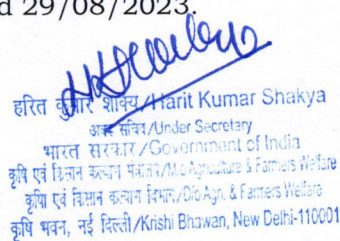 d 29/08/2023.
हरित कुमार शाक्य/Harit Kumar Shakya
अवर सचिव/Under Secretary
भारत सरकार/Government of India
कृषि एवं किसान कल्याण मंत्रालय/M/o Agriculture & Farmers Welfare
कृषि एवं किसान कल्याण विभाग/D/o Agri. & Farmers Welfare
कृषि भवन, नई दिल्ली/Krishi Bhawan, New Delhi-110001